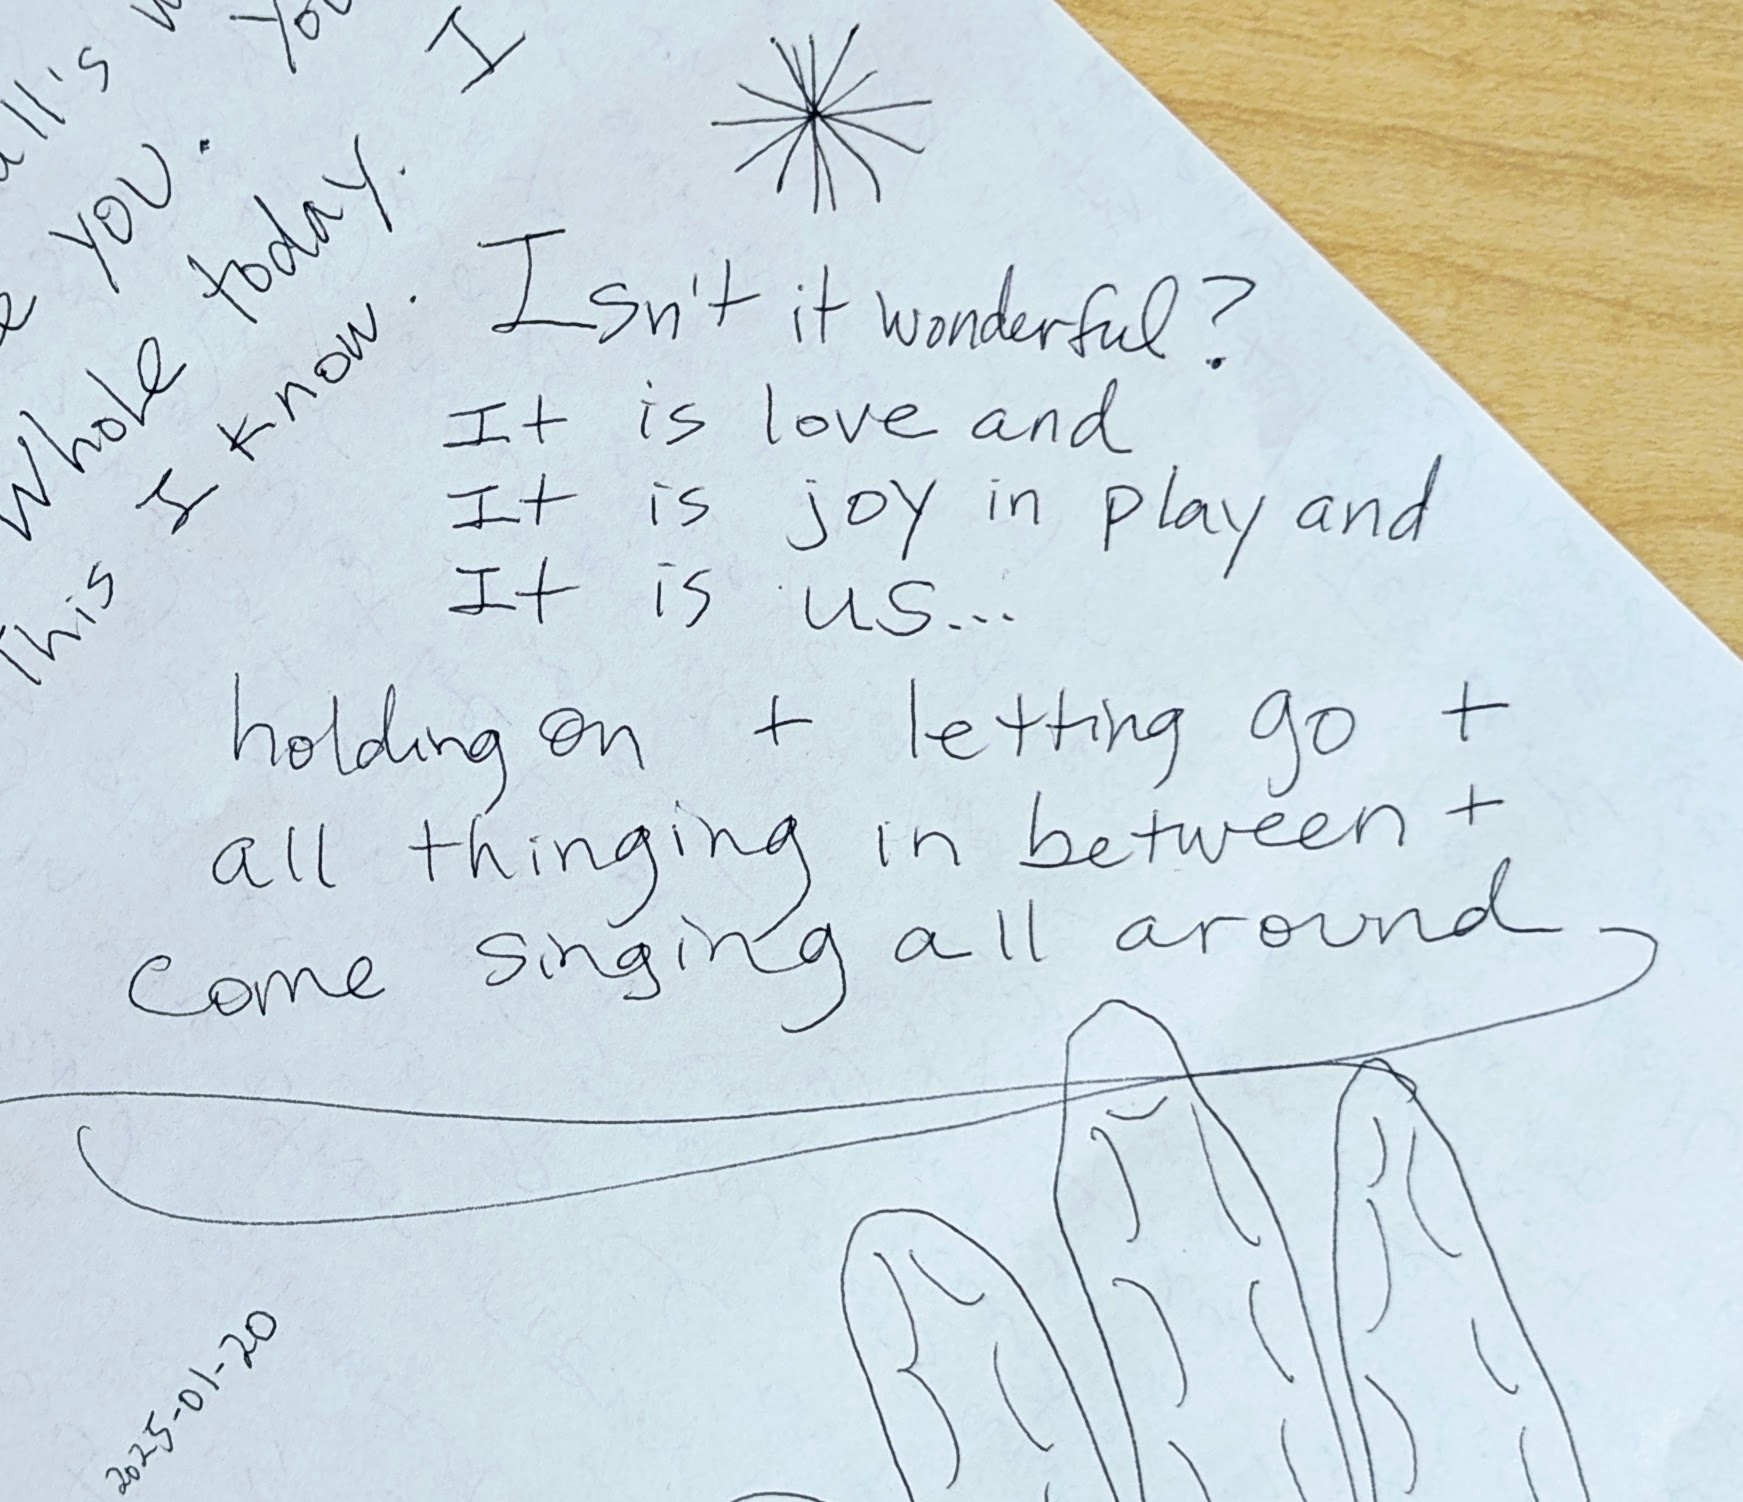 all's
You
I
you.
Whole today.
This I know.
Isn't it wonderful?
It is love and
It is joy in play and
It is us...
holding on + letting go +
all thinging in between +
come singing all around
2025-01-20